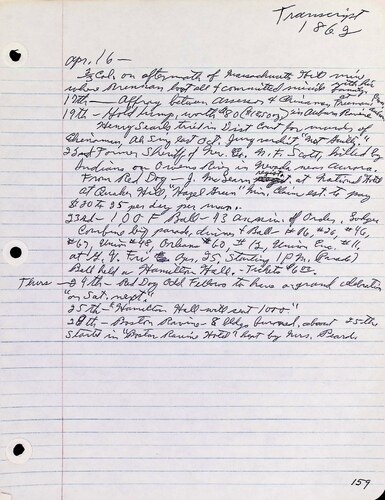 Transcript
1862
Apr. 16 —
Ed Col. on aftermath of Massachusetts Hill mine
where Brennan lost all & committed suicide with his family.
17th — Affray between Assessor & Chinamen,
19th — Hold hump, worth $80 in Auburn Ravine
Henry Searls tried in Dist Court for murder of
Chinaman, Ah Sing last Oct. Jury verdict "Not Guilty"
22nd Former Sheriff of Nev. Co. N. F. Scott, killed by
Indians on Owens River in Nevada, near Aurora.
From Red Dog — J. McSwyny at National Hotel
at Quaker Hill, "Hazel Green" Min. Claim est. to pay
$30 to 35 per day per man.
23rd — I O O F Ball — 43 anniv. of Order, Lodges
Combine big parade, dinner & Ball #16, #26, #46,
#67, Union #48, Orleans #60, #12, Union Enc. #11,
at G. V. Fri Apr. 25, Starting 1 P.M. (Parade)
Ball held at Hamilton Hall. — Tickets $6
Thurs — 24th — Red Dog Odd Fellows to have a grand celebration
"on Sat. next."
25th — "Hamilton Hall will seat 1000."
28th — Boston Ravine — 8 bldgs burned, about 25th
Started in "Boston Ravine Hotel" kept by Mrs. Beard
159